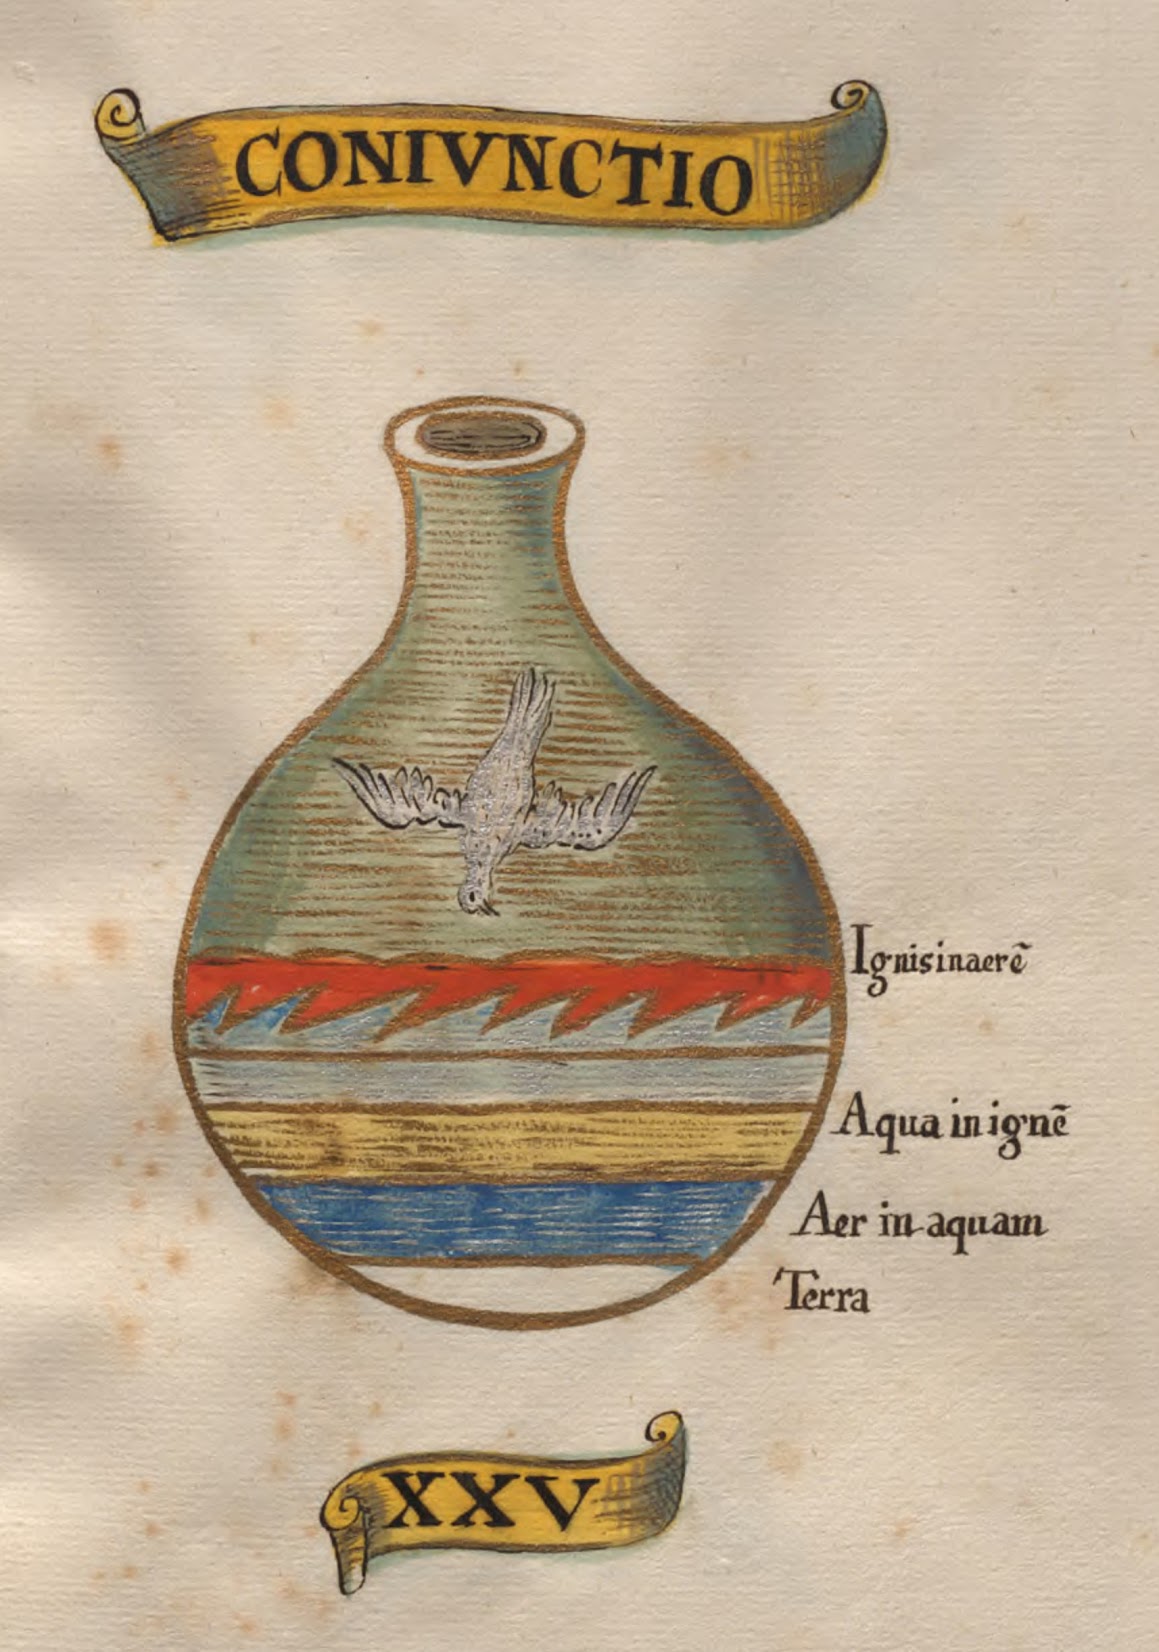 CONIVNCTIO
Ignisinaerẽ
Aqua in ignẽ
Aer in aquam
Terra
XXV